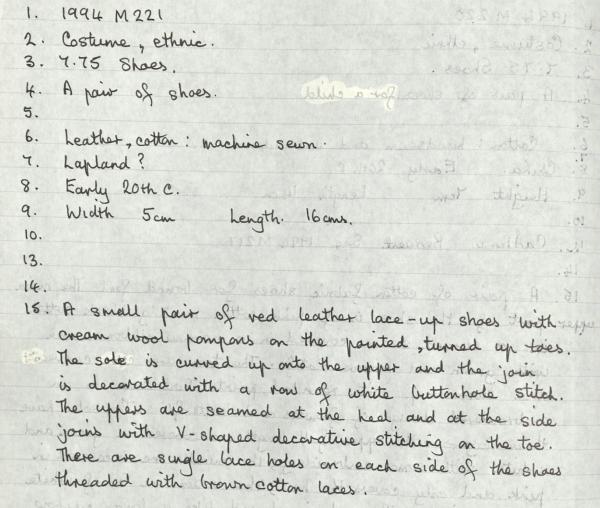 1. 1994 M 221
2. Costume, ethnic.
3. 7.75 Shoes.
4. A pair of shoes.
5.
6. Leather, cotton: machine sewn.
7. Lapland?
8. Early 20th C.
9. Width 5cm Length. 16cms.
10.
13.
14.
15. A small pair of red leather lace-up shoes with
cream wool pompons on the pointed, turned up toes.
The sole is curved up onto the upper and the join
is decorated with a row of white buttonhole stitch.
The uppers are seamed at the heel and at the side
joins with V-shaped decorative stitching on the toe.
There are single lace holes on each side of the shoes
threaded with brown cotton laces.